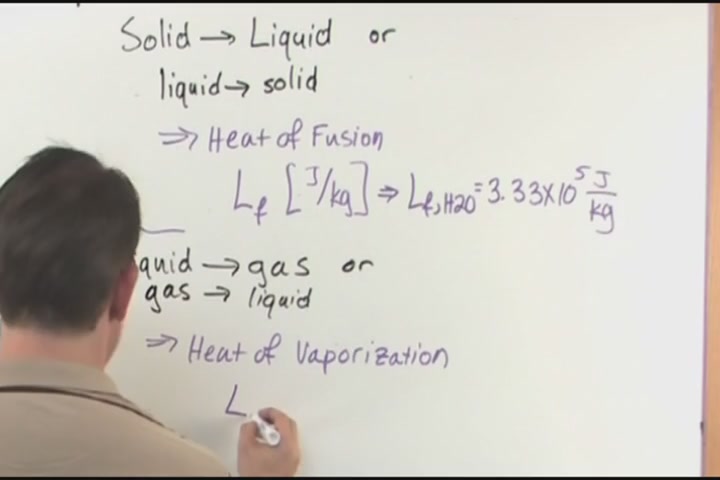 Solid → Liquid or
liquid → solid
⇒ Heat of Fusion
Lf [J/kg] ⇒ Lf,H2O = 3.33X10^5 J/kg
quid → gas or
gas → liquid
⇒ Heat of Vaporization
L